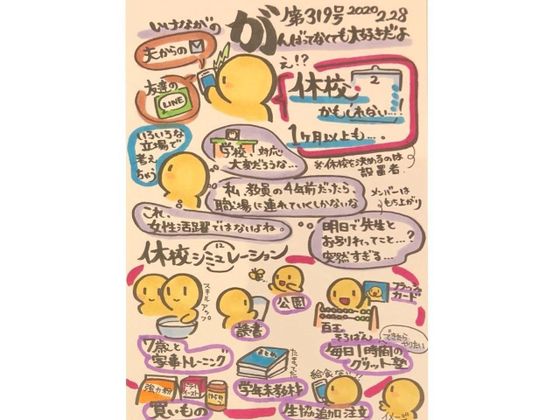 いけながの
がんばってなくても大好きだよ
第319号 2020 2.28
夫からの
友達の
LINE
え!?
休校
かもしれない…!
1ヶ月以上も…。
※休校を決めるのは
設置者。
いろいろな
立場で
考え
ちゃう
学校、対応
大変だろうな…
私、教員の4年前だったら、
職場に連れていくしかないな
これ、
女性活躍ではないよね。
メンバーは
もり上がり
明日で先生と
お別れってこと…?
突然すぎる…
休校シミュレーション
スキルアップ
7歳と
家事トレーニング
読書
公園
フラッシュ
カード
百玉
そろばん
できたら
やりたい
毎日1時間の
グリット塾
強力粉
イースト
買いもの
まとめ
たまってた
学年末教材
給食ない!!
生協追加注文
イメージ